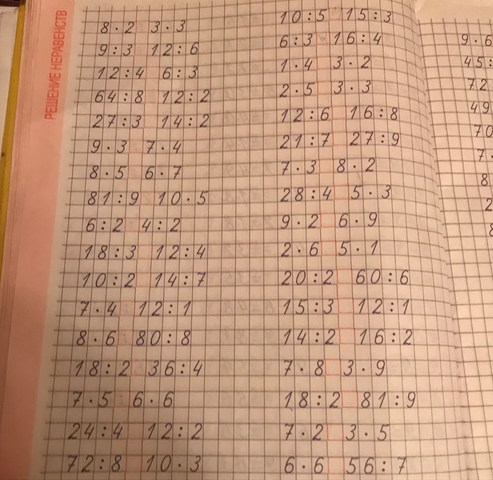 РЕШЕНИЕ НЕРАВЕНСТВ
8·2 3·3
9:3 12:6
12:4 6:3
64:8 12:2
27:3 14:2
9·3 7·4
8·5 6·7
81:9 10·5
6:2 4:2
18:3 12:4
10:2 14:7
7·4 12:1
8·6 80:8
18:2 36:4
7·5 6·6
24:4 12:2
72:8 10·3
10:5 15:3
6:3 16:4
1·4 3·2
2·5 3·3
12:6 16:8
21:7 27:9
7·3 8·2
28:4 5·3
9·2 6·9
2·6 5·1
20:2 60:6
15:3 12:1
14:2 16:2
7·8 3·9
18:2 81:9
7·2 3·5
6·6 56:7
9·6
45:
72
49
70
7·
8
2